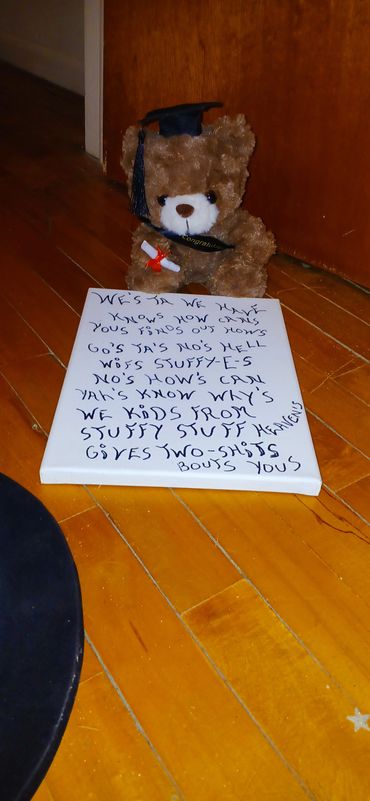 Congratula
WE'S TA WE HAVE
KNOWS HOW CANS
YOUS FINDS OUT HOWS
GO'S TA'S NO'S HELL
WIFS STUFFY-E-S
NO'S HOW'S CAN
YAH'S KNOW WHY'S
WE KIDS FROM
STUFFY STUFF HEAVENS
GIVES TWO-SHITS
BOUTS YOUS